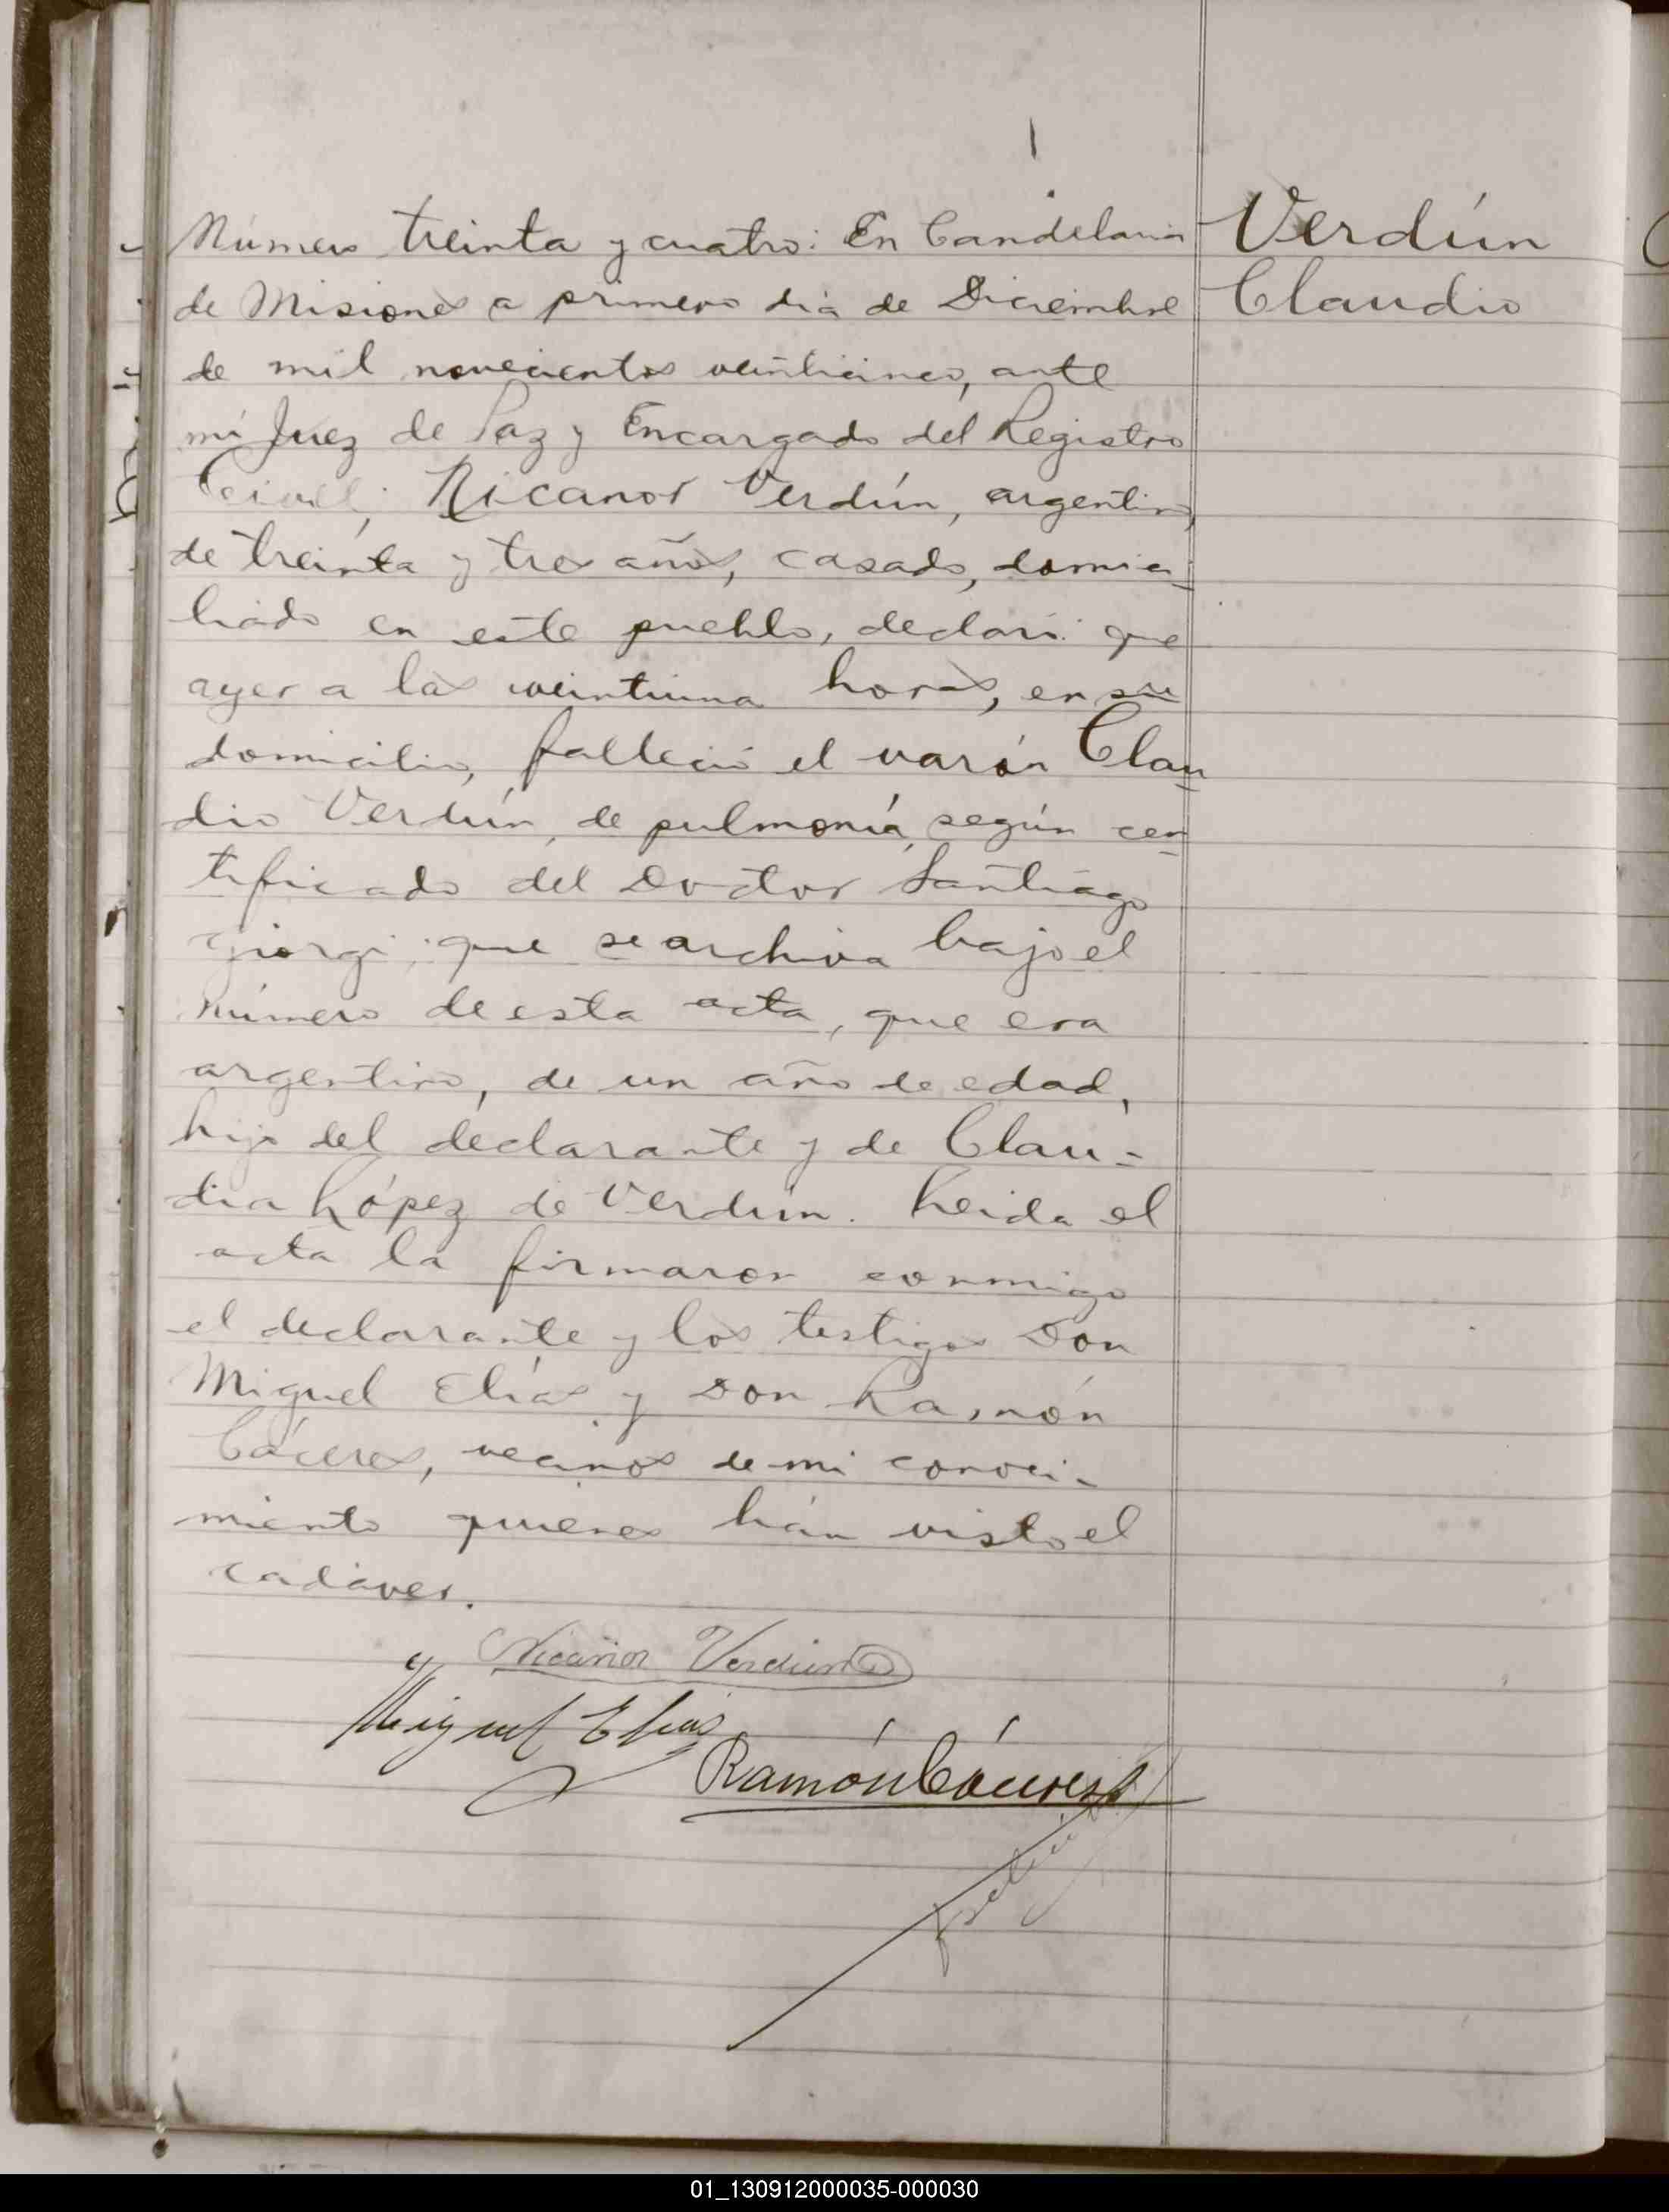 Verdún
Claudio
Número treinta y cuatro: En Candelaria
de Misiones a primero dia de Diciembre
de mil novecientos veinticinco, ante
mi Juez de Paz y Encargado del Registro
Civil, Nicanor Verdún, argentino,
de treinta y tres años, casado, domici-
liado en este pueblo, declaró: que
ayer a las veintiuna horas, en su
domicilio, falleció el varón Clau-
dio Verdún, de pulmonía, según cer-
tificado del Doctor Santiago
Giorgi, que se archiva bajo el
número de esta acta, que era
argentino, de un año de edad,
hijo del declarante y de Clau-
dia López de Verdún. Leida el
acta la firmaron conmigo
el declarante y los testigos Don
Miguel Elías y Don Ramón
Cáceres, vecinos de mi conoci-
miento quienes hán visto el
cadáver.
Nicanor Verdún
Miguel Elías
Ramón Cáceres
01_130912000035-000030